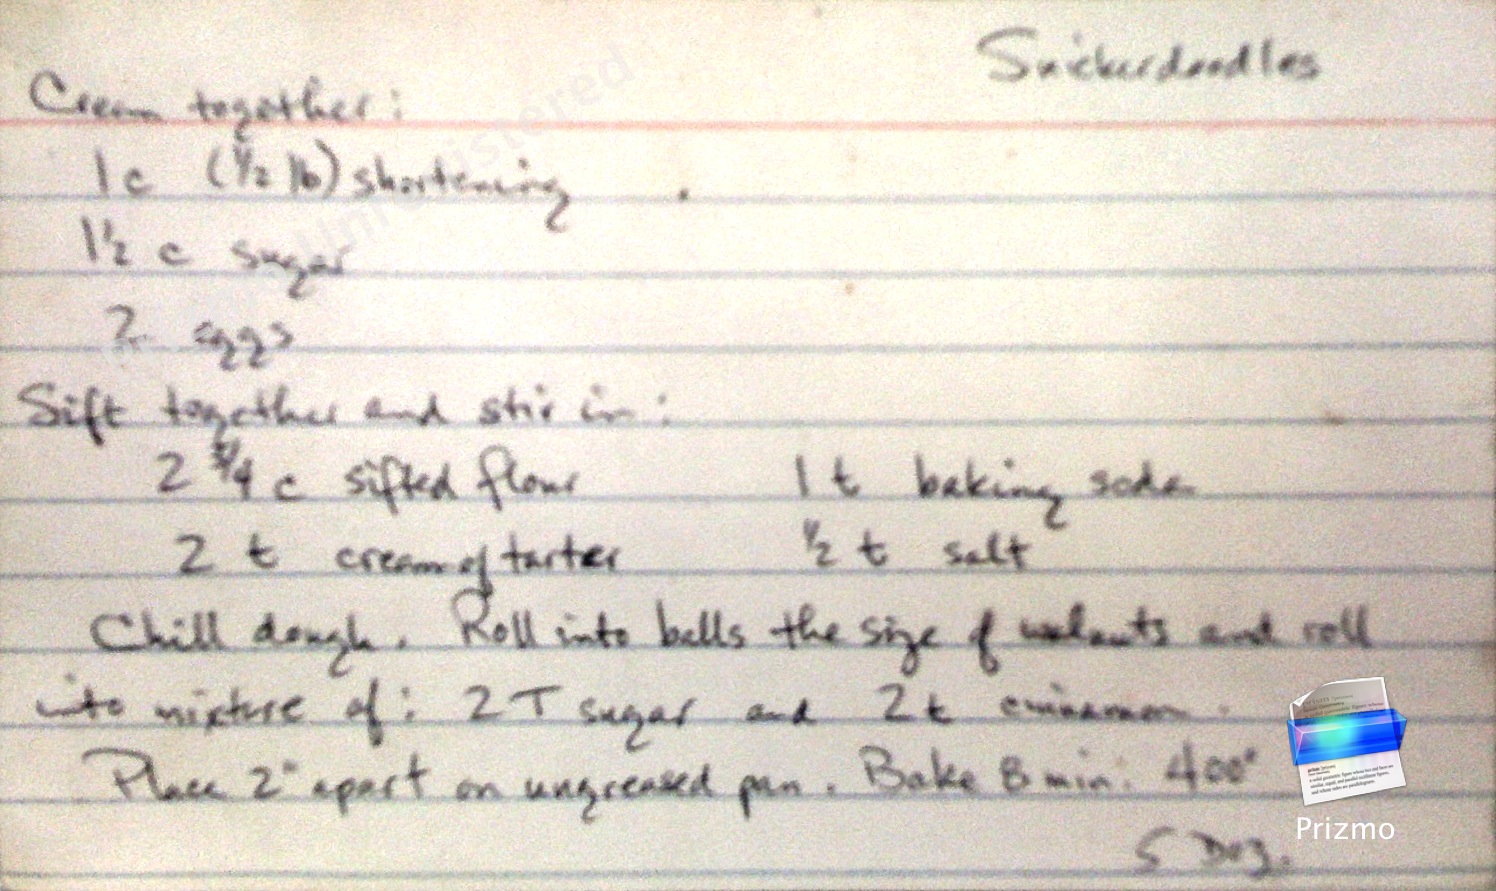 Snickerdoodles
Cream together:
1 c (1/2 lb) shortening
1 1/2 c sugar
2 eggs
Sift together and stir in:
2 3/4 c sifted flour 1 t baking soda
2 t cream of tarter 1/2 t salt
Chill dough. Roll into balls the size of walnuts and roll
into mixture of: 2 T sugar and 2 t cinnamon.
Place 2" apart on ungreased pan. Bake 8 min. 400°
5 Doz.
Unregistered
Prizmo